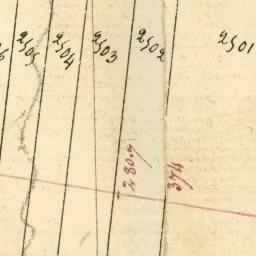 2505
2504
2503
2502
2501
2807
374